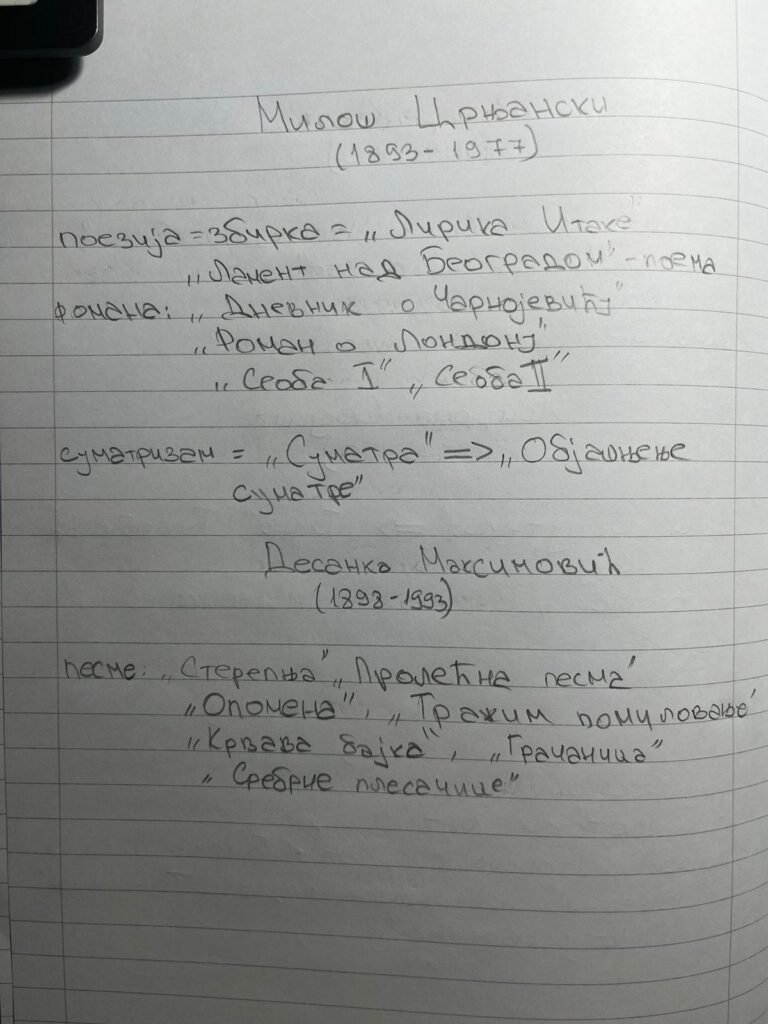 Милош Црњански
(1893-1977)
поезија = збирка = „Лирика Итаке"
„Ламент над Београдом" - поема
романа: „Дневник о Чарнојевићу"
„Роман о Лондону"
„Сеоба I" „Сеоба II"
суматризам = „Суматра" => „Објашњење
суматре"
Десанка Максимовић
(1898-1993)
песме: „Стрепња" „Пролећна песма"
„Опомена", „Тражим помиловање"
„Крвава бајка", „Грачаница"
„Сребрне плесачице"